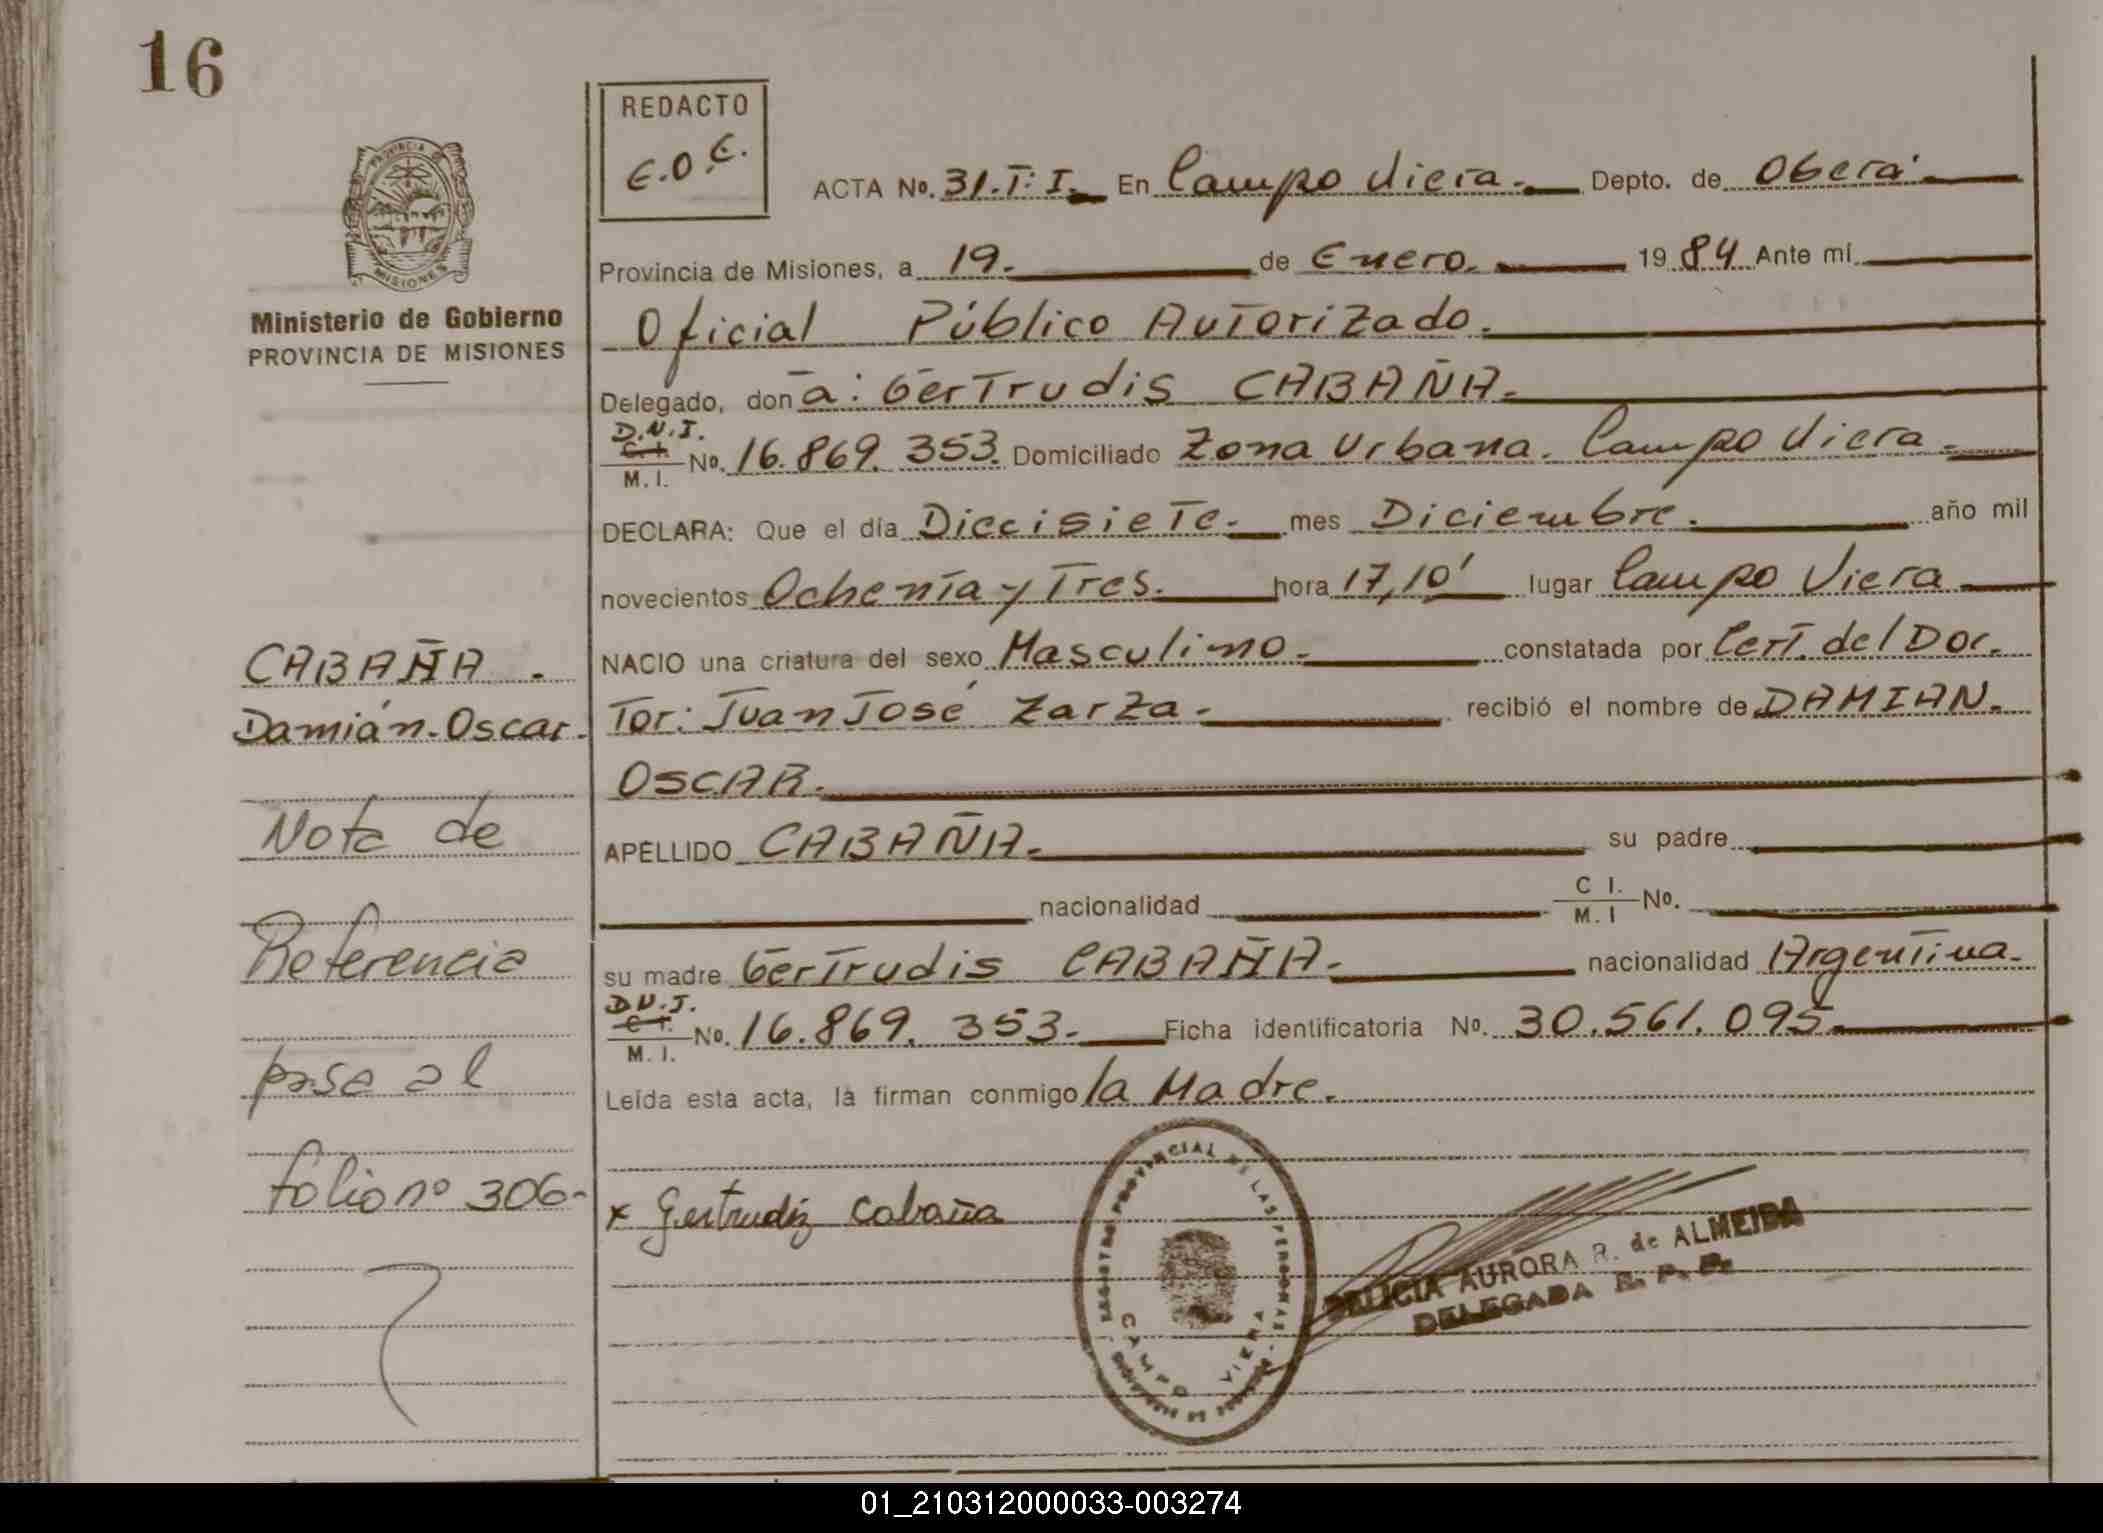 16
REDACTO
E.O.E.
ACTA No. 31.T:I. En Campo Viera. Depto. de Oberá.
PROVINCIA DE MISIONES
Provincia de Misiones, a 19. de Enero. 1984 Ante mí
Ministerio de Gobierno
PROVINCIA DE MISIONES
Oficial Público Autorizado.
Delegado, don a: Gertrudis CABAÑA.
D.N.I.
C.I.
M.I. No. 16.869.353. Domiciliado Zona Urbana. Campo Viera.
DECLARA: Que el día Diecisiete. mes Diciembre. año mil
novecientos Ochenta y Tres. hora 17,10' lugar Campo Viera
CABAÑA.
NACIO una criatura del sexo Masculino. constatada por Cert. del Doc.
Damián. Oscar.
Tor: Juan José Zarza. recibió el nombre de DAMIAN.
OSCAR.
Nota de
APELLIDO CABAÑA. su padre
nacionalidad C I. M. I No.
Referencia
su madre Gertrudis CABAÑA. nacionalidad Argentina.
D.N.I.
C I.
M. I. No. 16.869.353. Ficha identificatoria No. 30.561.095
pasa al
Leída esta acta, la firman conmigo la Madre.
folio nº 306-
x Gertrudiz Cabaña
REGISTRO PROVINCIAL DE LAS PERSONAS
CAMPO VIERA
DELICIA AURORA R. de ALMEIDA
DELEGADA R. P. P.
01_210312000033-003274